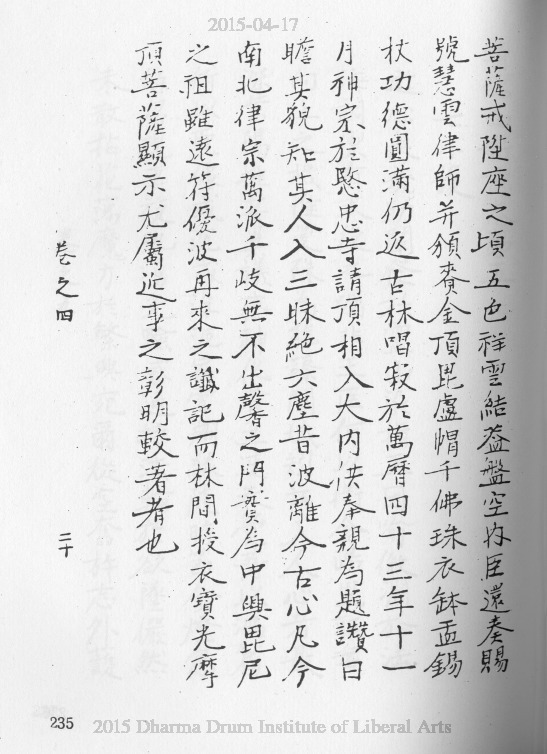 2015-04-17
菩薩戒陞座之頃五色祥雲結葢盤空內臣還奏賜
號慧雲律師并頒賚金頂毘盧帽千佛珠衣鉢盂錫
杖功德圓滿仍返古林唱寂於萬曆四十三年十一
月神宗於愍忠寺請頂相入大內供奉親為題讚曰
瞻其貌知其人入三昧絶六塵昔波離今古心凡今
南北律宗萬派千岐無不出馨之門實為中興毘尼
之祖雖遠符優波再來之讖記而林間授衣寶光摩
頂菩薩顯示尤屬近事之彰明較著者也
卷之四
三十
235
2015 Dharma Drum Institute of Liberal Arts